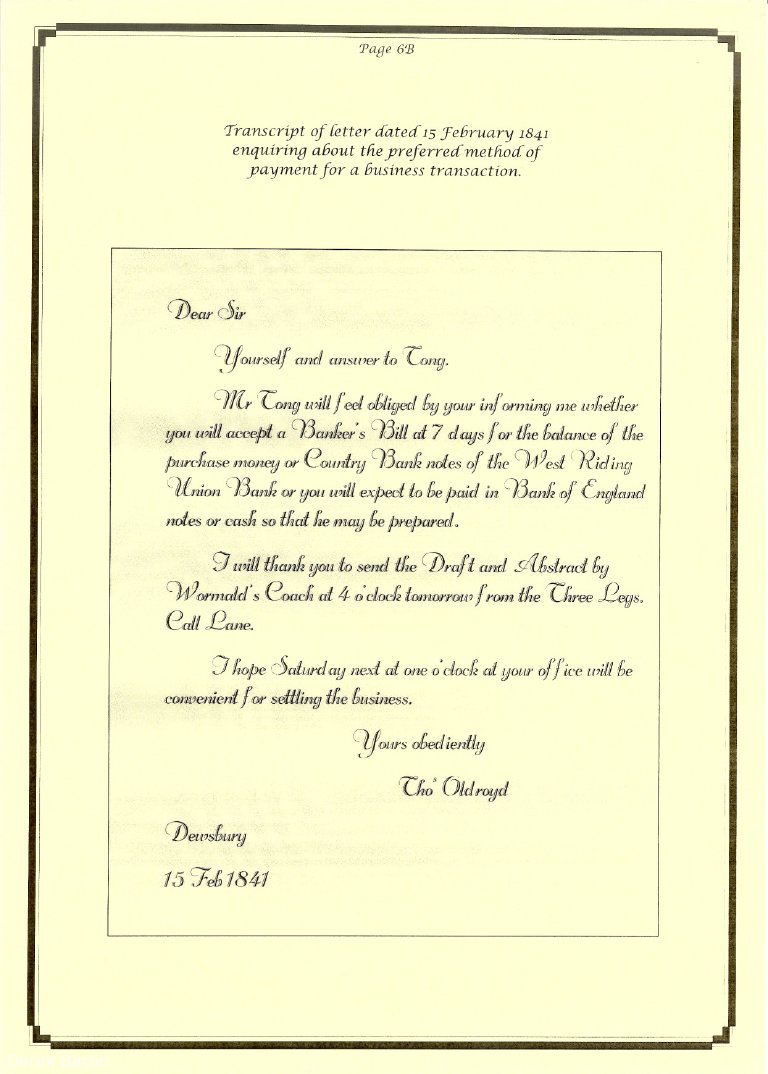 Page 6B
Transcript of letter dated 15 February 1841
enquiring about the preferred method of
payment for a business transaction.
Dear Sir
Yourself and answer to Tong.
Mr Tong will feel obliged by your informing me whether
you will accept a Banker's Bill at 7 days for the balance of the
purchase money or Country Bank notes of the West Riding
Union Bank or you will expect to be paid in Bank of England
notes or cash so that he may be prepared.
I will thank you to send the Draft and Abstract by
Wormald's Coach at 4 o'clock tomorrow from the Three Legs.
Call Lane.
I hope Saturday next at one o'clock at your office will be
convenient for settling the business.
Yours obediently
Thoˢ Oldroyd
Dewsbury
15 Feb 1841